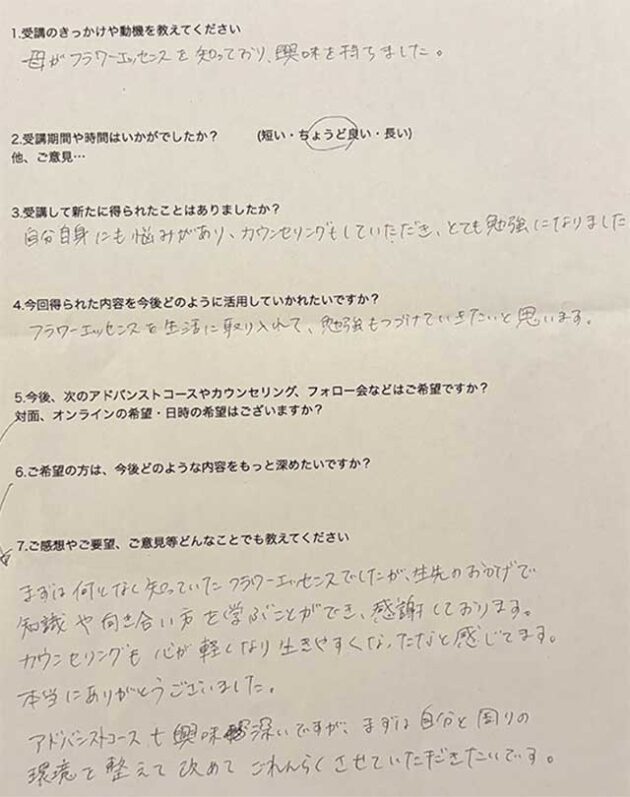 1.受講のきっかけや動機を教えてください
母がフラワーエッセンスを知っており、興味を持ちました。
2.受講期間や時間はいかがでしたか？ (短い・ちょうど良い・長い)
他、ご意見…
3.受講して新たに得られたことはありましたか？
自分自身にも悩みがあり、カウンセリングもしていただき、とても勉強になりました
4.今回得られた内容を今後どのように活用していかれたいですか？
フラワーエッセンスを生活に取り入れて、勉強もつづけていきたいと思います。
5.今後、次のアドバンストコースやカウンセリング、フォロー会などはご希望ですか？
対面、オンラインの希望・日時の希望はございますか？
6.ご希望の方は、今後どのような内容をもっと深めたいですか？
7.ご感想やご要望、ご意見等どんなことでも教えてください
まずは何となく知っていたフラワーエッセンスでしたが、先生のおかげで
知識や向き合い方を学ぶことができ、感謝しております。
カウンセリングも心が軽くなり生きやすくなったなと感じてます。
本当にありがとうございました。
アドバンストコースも興味深いですが、まずは自分と周りの
環境を整えて改めてごれんらくさせていただきたいです。